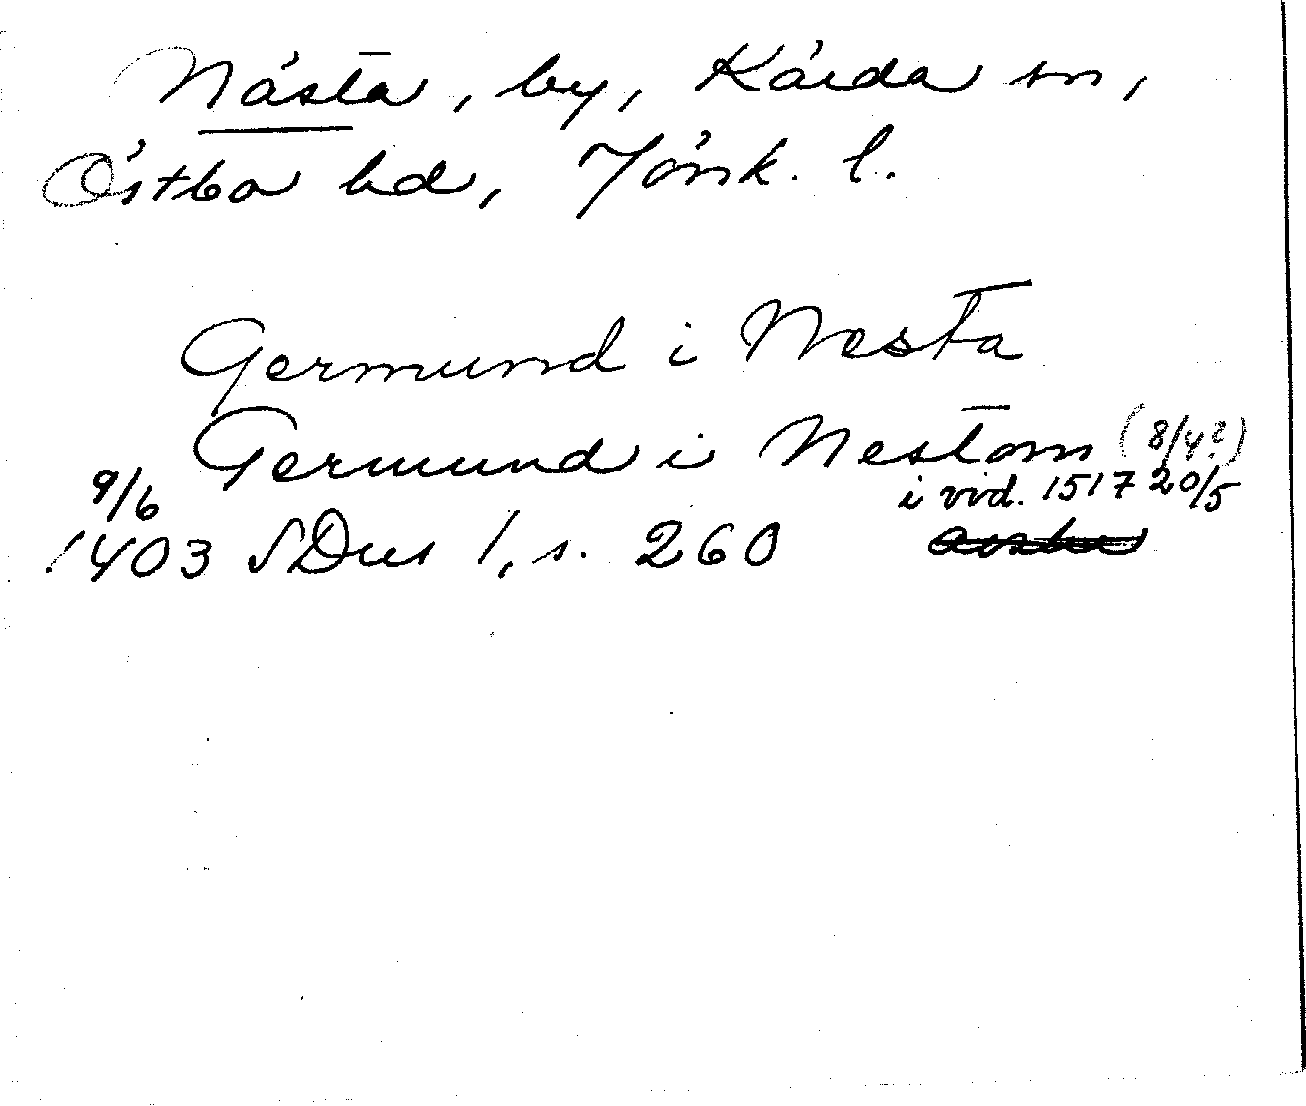 Nästa, by, Kärda sn,
Östbo hd, Jönk. l.
Germund i Nesta
Germund i Nestom (8/4?)
i vid. 1517 20/5
9/6
1403 SDns 1, s. 260